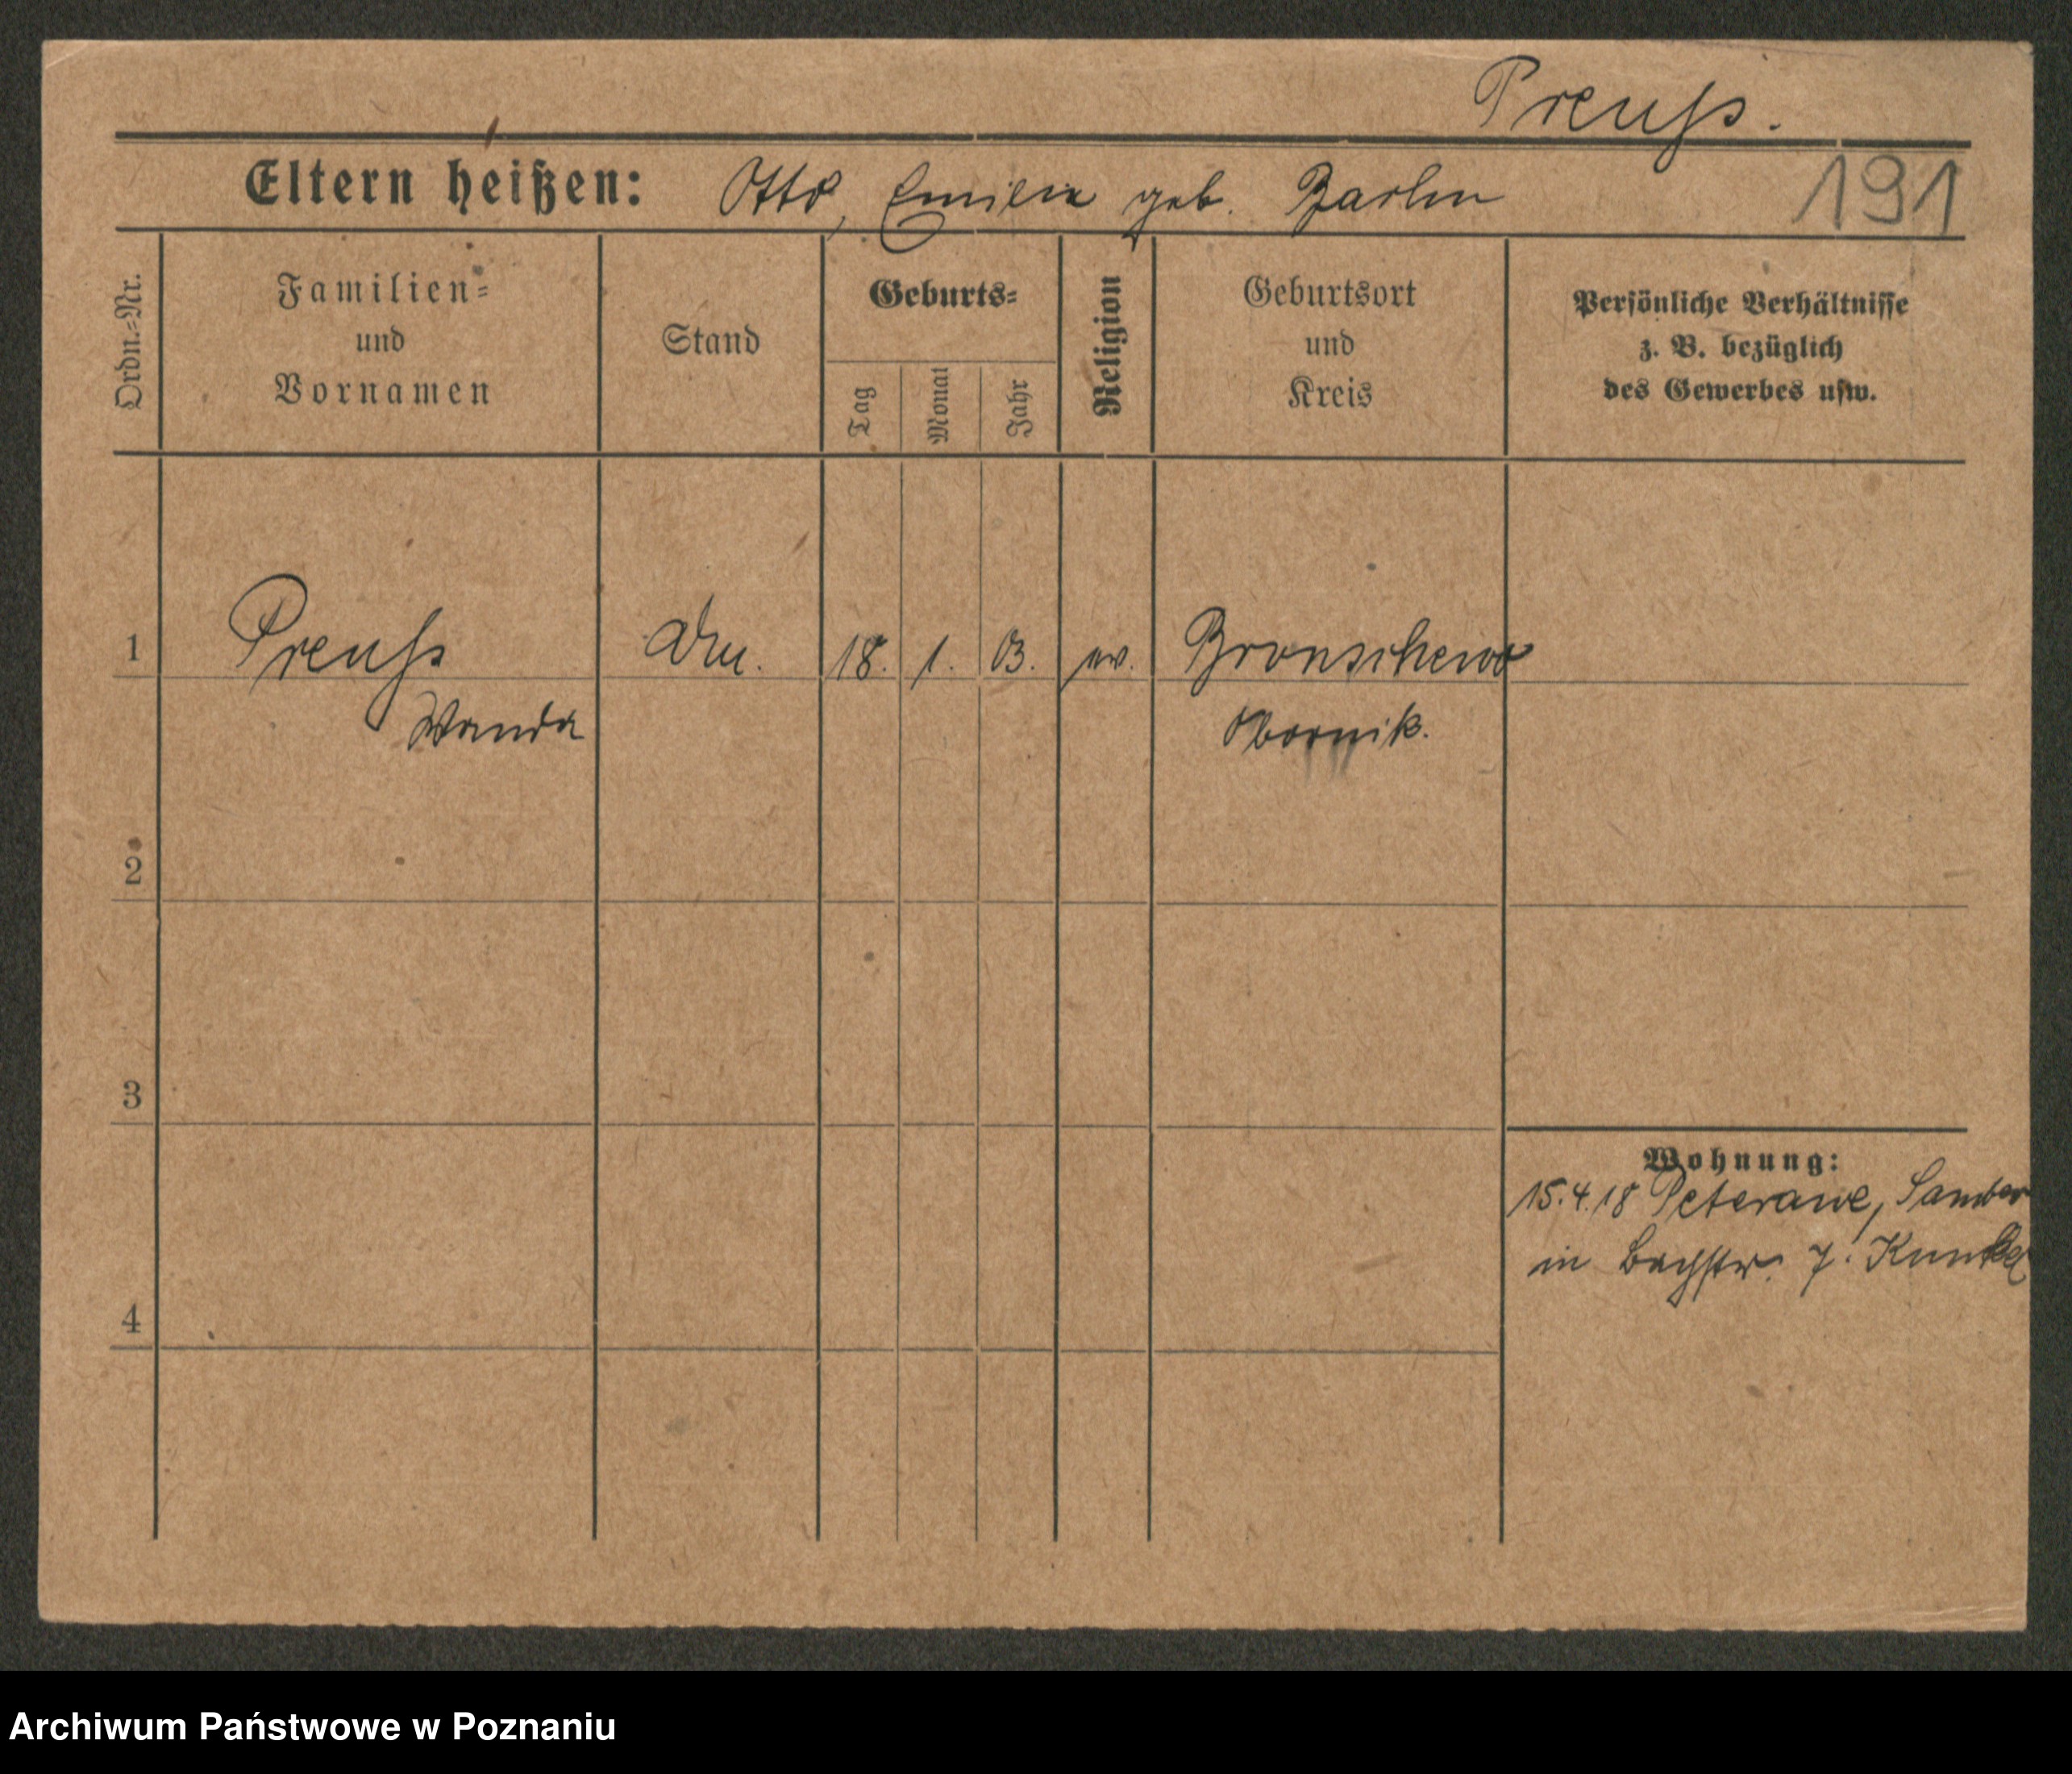 Preuß.
Eltern heißen: Otto, Emilie geb. Zarlin
191
Ordn.=Nr.
Familien=
und
Vornamen
Stand
Geburts=
Tag
Monat
Jahr
Religion
Geburtsort
und
Kreis
Persönliche Verhältnisse
z. B. bezüglich
des Gewerbes usw.
1 Preuß 18. 1. 03. ev. Bronschewo
Wanda Obornik.
2
3
4
Wohnung:
15.4.18 Peterawe, Samter
in Bachstr. 7. Kunkel
Archiwum Państwowe w Poznaniu